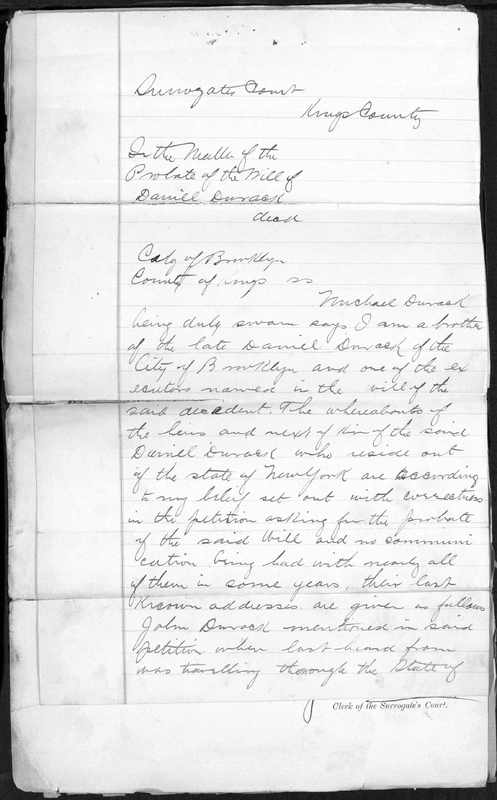 Surrogates Court
Kings County
In the Matter of the
Probate of the Will of
Daniel Durack
decd
City of Brooklyn
County of Kings ss
Michael Durack
being duly sworn says I am a brother
of the late Daniel Durack of the
City of Brooklyn and one of the ex
ecutors named in the will of the
said decedent. The whereabouts of
the heirs and next of kin of the said
Daniel Durack who reside out
of the state of New York are according
to my belief set out with correctness
in the petition asking for the probate
of the said Will and no communi
cation being had with nearly all
of them in some years, their last
Known addresses are given as follows
John Durack mentioned in said
petition when last heard from
was travelling through the State of
Clerk of the Surrogate's Court.